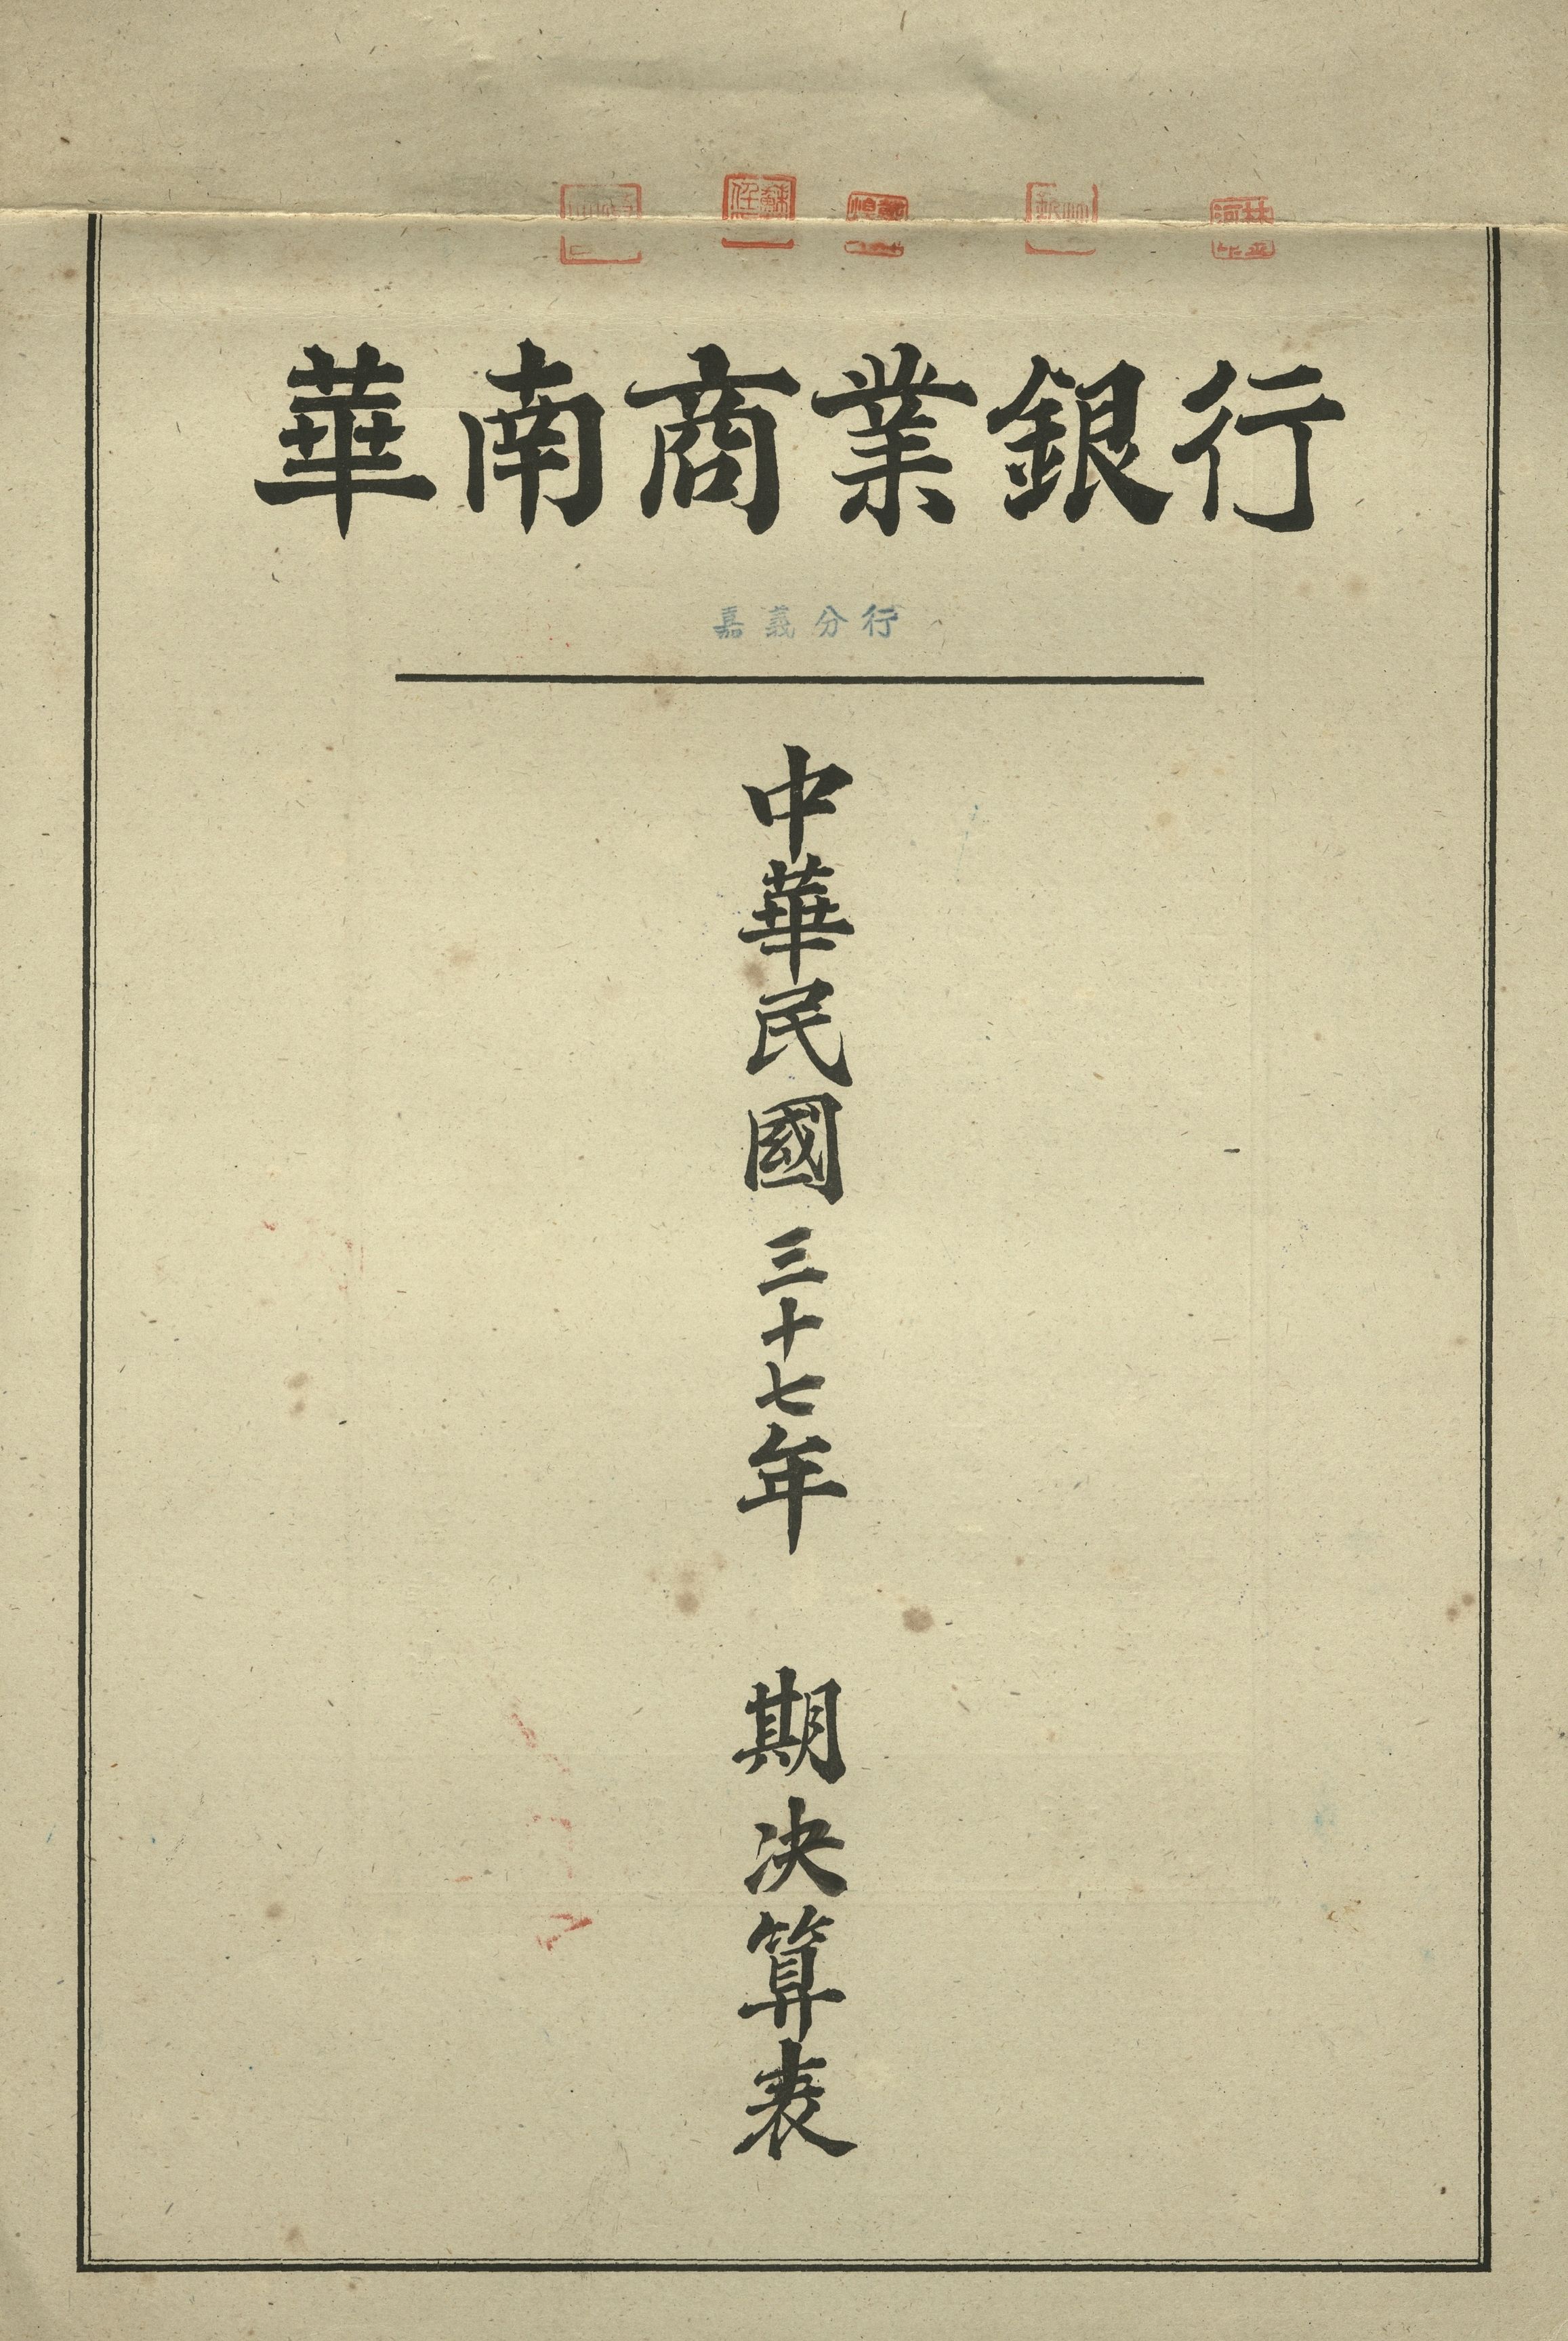 華南商業銀行
嘉義分行
中華民國三十七年 期決算表